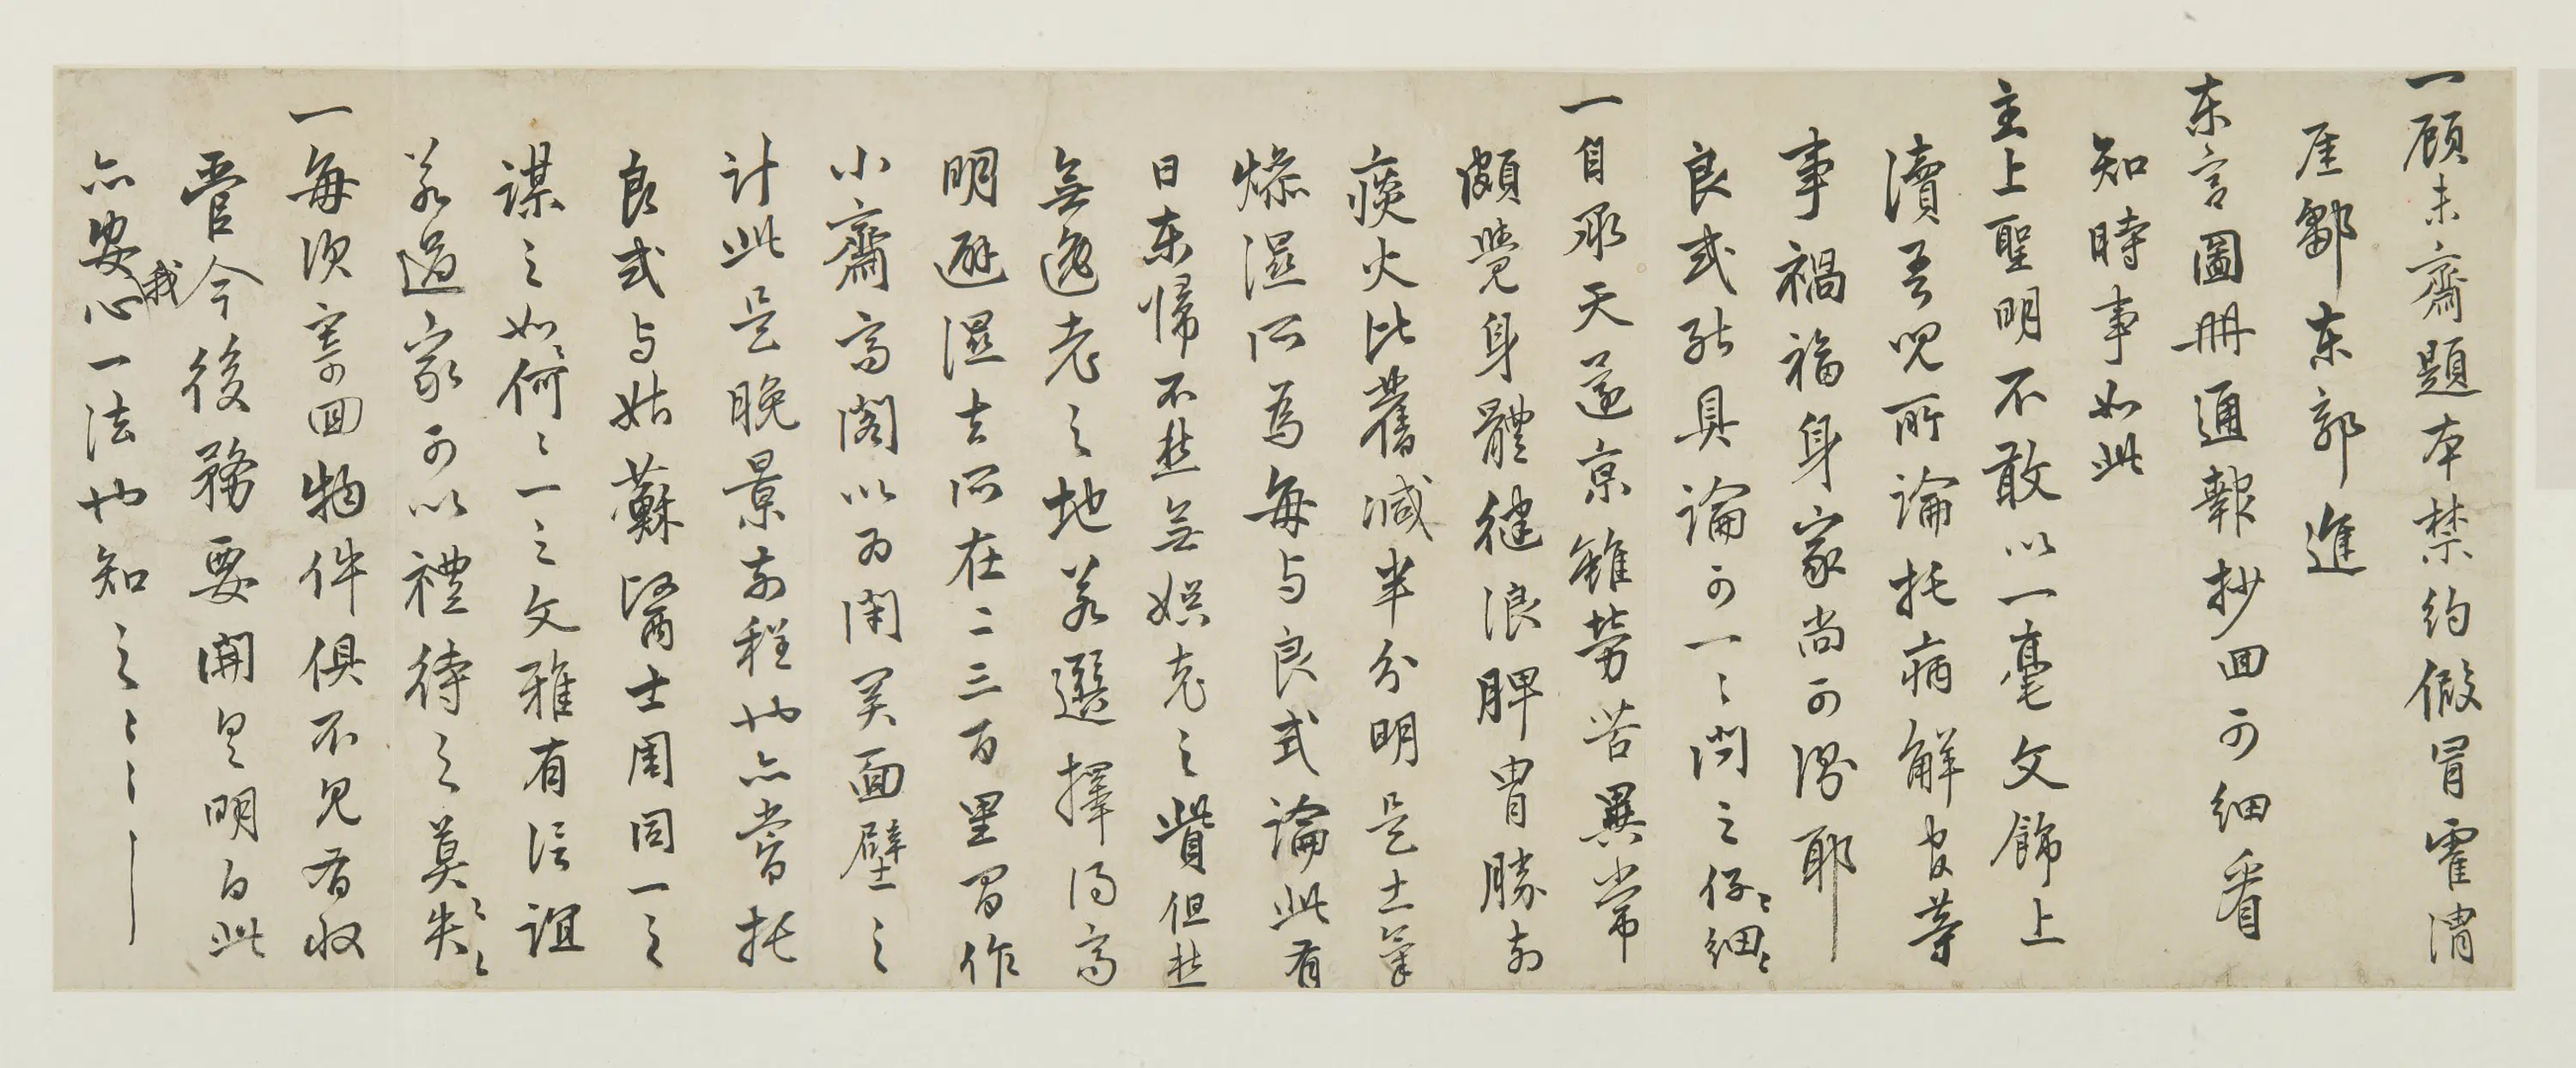 一顧未齋題本禁約假冒霍渭
厓鄒東郭進
東宮圖冊通報抄回可細看
知時事如此
主上聖明不敢以一毫文飾上
瀆吾兒所論托病解官等
事禍福身家尚可得耶
良式能具論可一〻問之仔〻細〻
一自承天還京雖勞苦異常
頗覺身體健浪脾胃勝前
痰火比舊減半分明是土氣
燥濕所為每与良式論此有
日東歸不愁無娛老之貲但愁
無逸老之地若選擇得高
明避濕去所在二三百里間作
小齋高閣以為閉關面壁之
計此是晚景前程也亦嘗托
良式与姑蘇醫士周同一之
謀之如何〻一之文雅有信誼
若過家可以禮待之莫〻失〻
一每次寄回物件俱不見有收
管今後務要開具明白此
亦安我心一法也知之〻〻